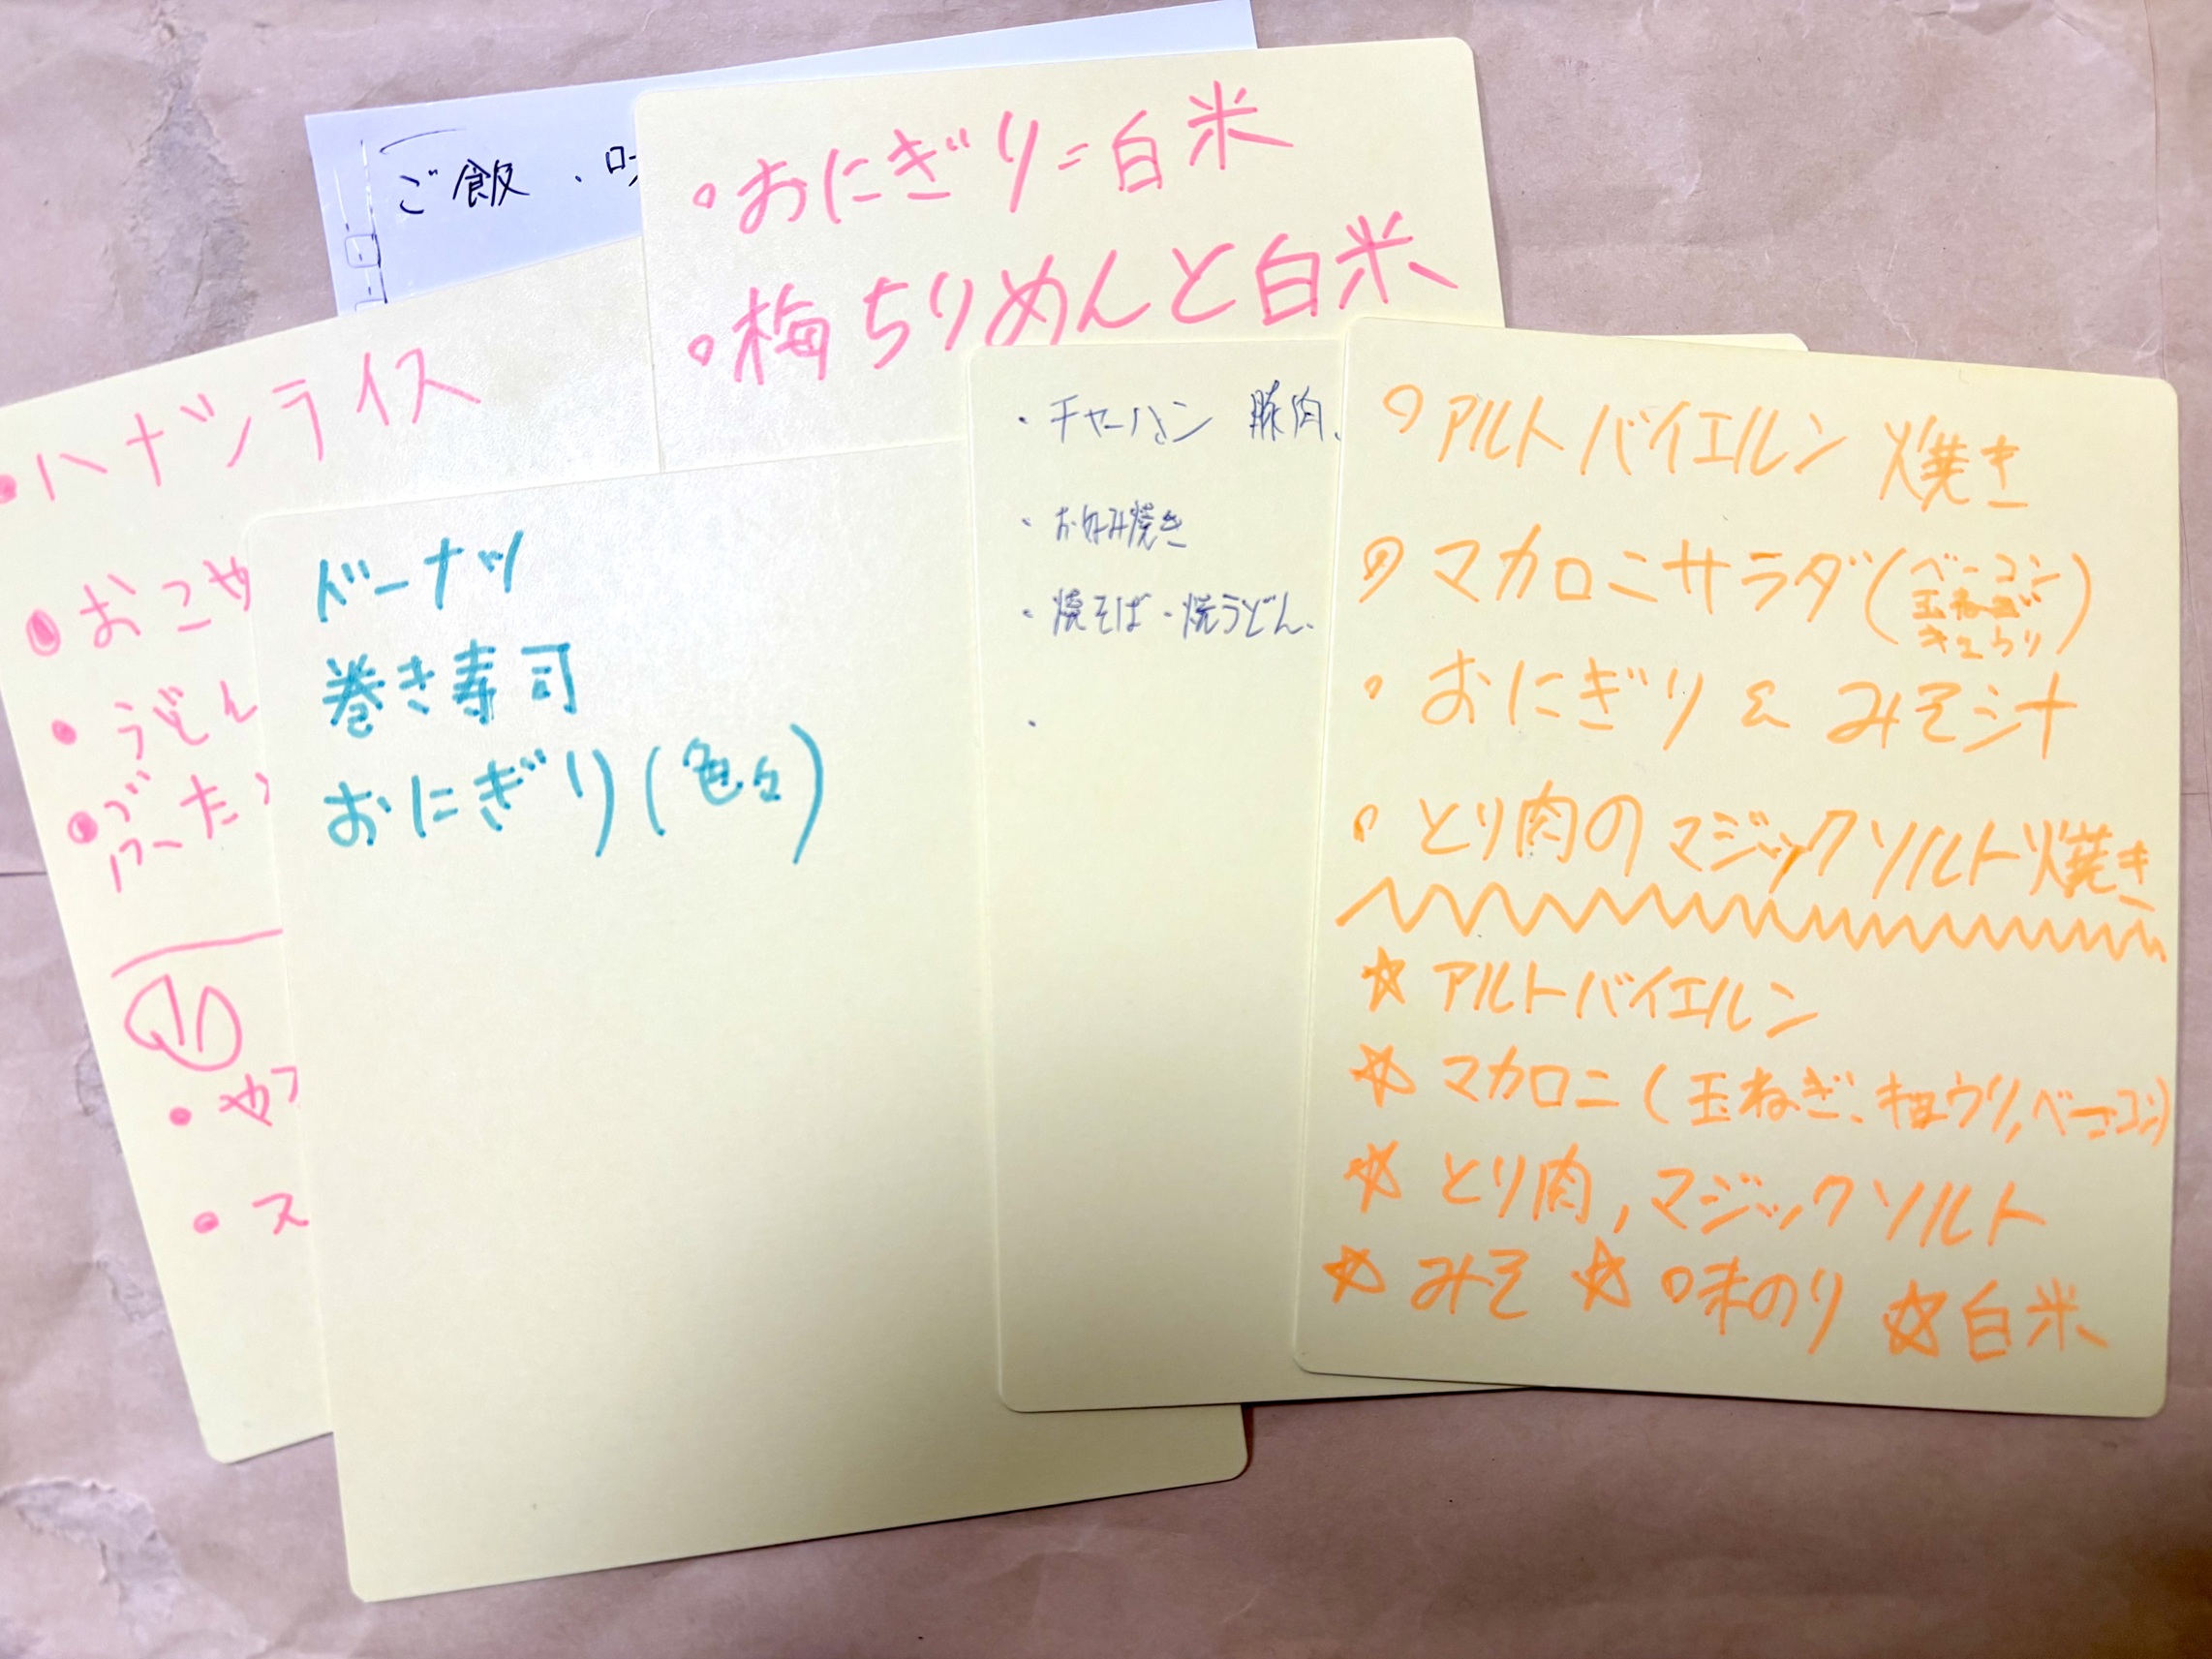 ご飯、
・おにぎり=白米
・梅ちりめんと白米
・ハヤシライス
・おこや
・うどん
ドーナツ
巻き寿司
おにぎり(色々)
・チャーハン 豚肉、
・お好み焼き
・焼そば・焼うどん、
・
・アルトバイエルン 焼き
・マカロニサラダ(ベーコン
玉ねぎ
きゅうり)
・おにぎり & みそ汁
・とり肉のマジックソルト焼き
☆ アルトバイエルン
☆ マカロニ(玉ねぎ、キュウリ,ベーコン)
☆ とり肉,マジックソルト
☆ みそ ☆ 味のり ☆ 白米